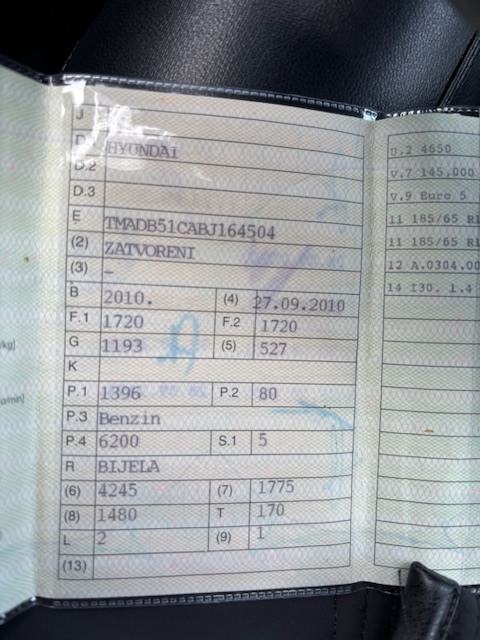 J
D.1 HYUNDAI
D.2
D.3
E TMADB51CABJ164504
(2) ZATVORENI
(3) –
B 2010. (4) 27.09.2010
F.1 1720 F.2 1720
G 1193 (5) 527
K
P.1 1396 P.2 80
P.3 Benzin
P.4 6200 S.1 5
R BIJELA
(6) 4245 (7) 1775
(8) 1480 T 170
L 2 (9) 1
(13)
/kg]
/min]
U.2 4650
V.7 145,000
V.9 Euro 5
11 185/65 R1
11 185/65 R1
12 A.0304.00
14 I30. 1.4